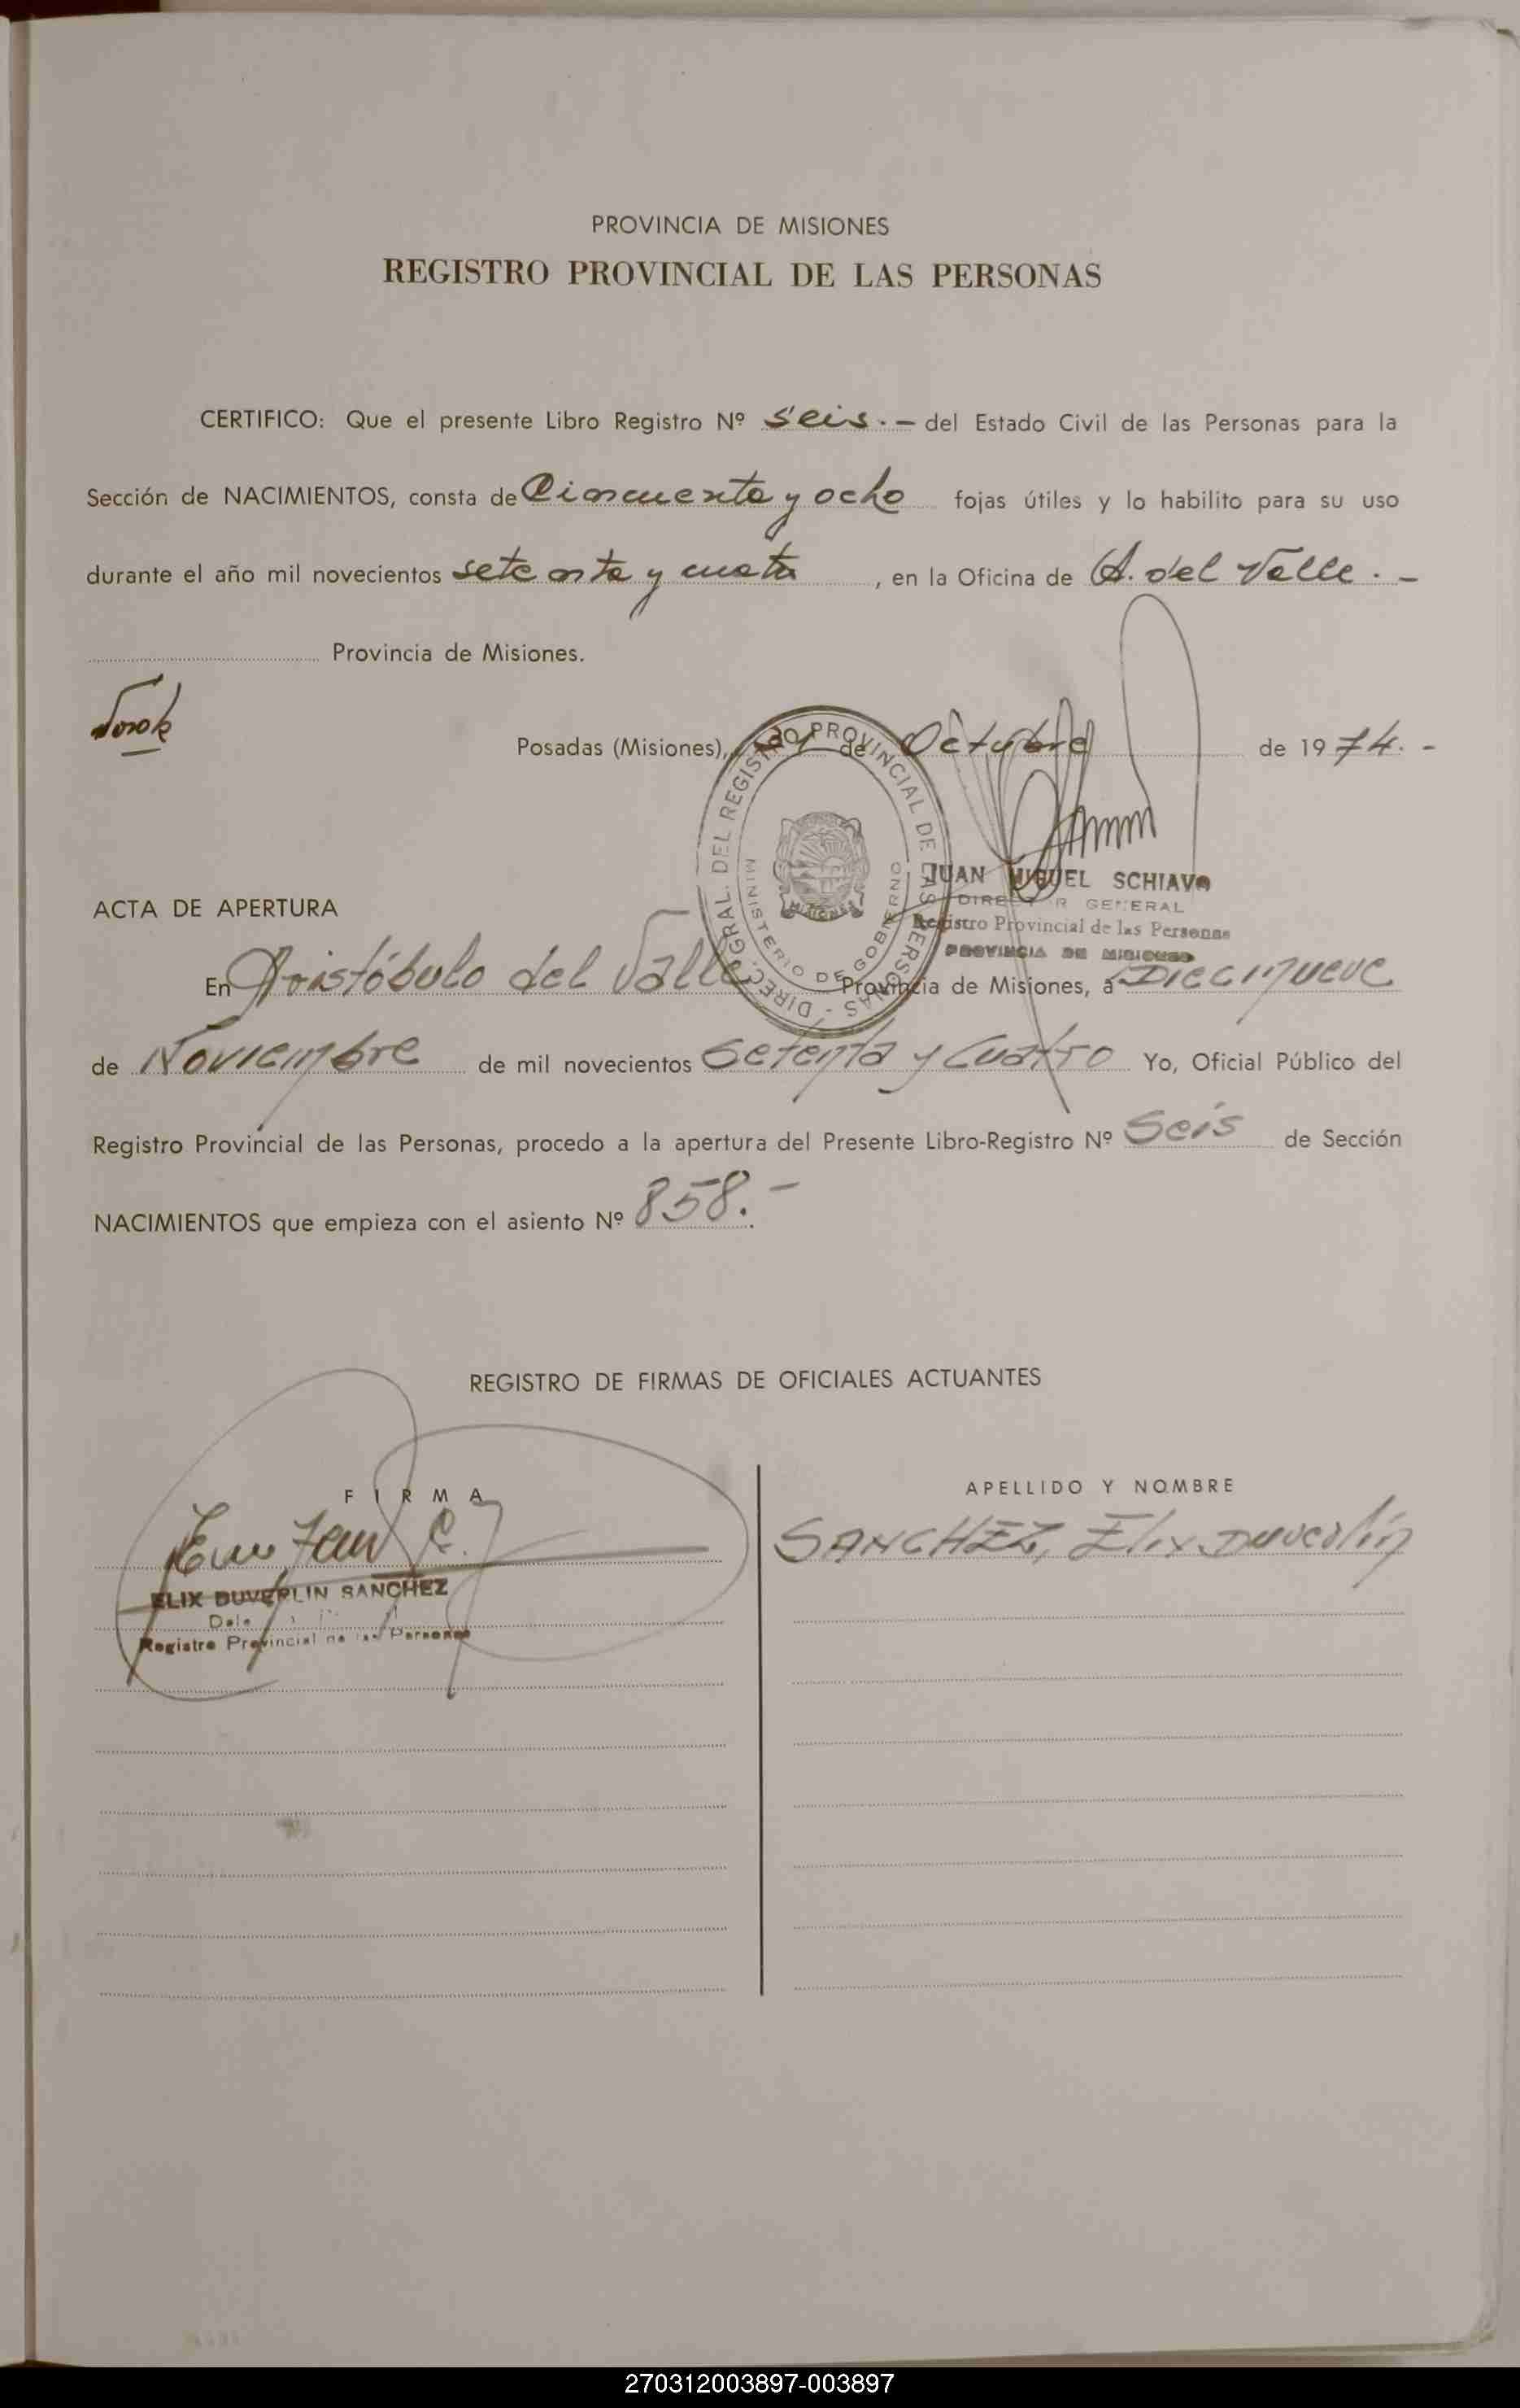 PROVINCIA DE MISIONES
REGISTRO PROVINCIAL DE LAS PERSONAS
CERTIFICO: Que el presente Libro Registro Nº Seis.- del Estado Civil de las Personas para la
Sección de NACIMIENTOS, consta de Cincuenta y ocho fojas útiles y lo habilito para su uso
durante el año mil novecientos setenta y cuatro, en la Oficina de A. del Valle.-
Provincia de Misiones.
Posadas (Misiones), de Octubre de 1974.-
DIREC. GRAL. DEL REGISTRO PROVINCIAL DE LAS PERSONAS -
MINISTERIO DE GOBIERNO
MISIONES
JUAN MIGUEL SCHIAVO
DIRECTOR GENERAL
Registro Provincial de las Personas
PROVINCIA DE MISIONES
ACTA DE APERTURA
En Aristóbulo del Valle Provincia de Misiones, a Diecinueve
de Noviembre de mil novecientos Setenta y Cuatro Yo, Oficial Público del
Registro Provincial de las Personas, procedo a la apertura del Presente Libro-Registro Nº Seis de Sección
NACIMIENTOS que empieza con el asiento Nº 858.-
REGISTRO DE FIRMAS DE OFICIALES ACTUANTES
FIRMA
APELLIDO Y NOMBRE
SANCHEZ, Elix Duverlin
ELIX DUVERLIN SANCHEZ
Registro Provincial de las Personas
270312003897-003897